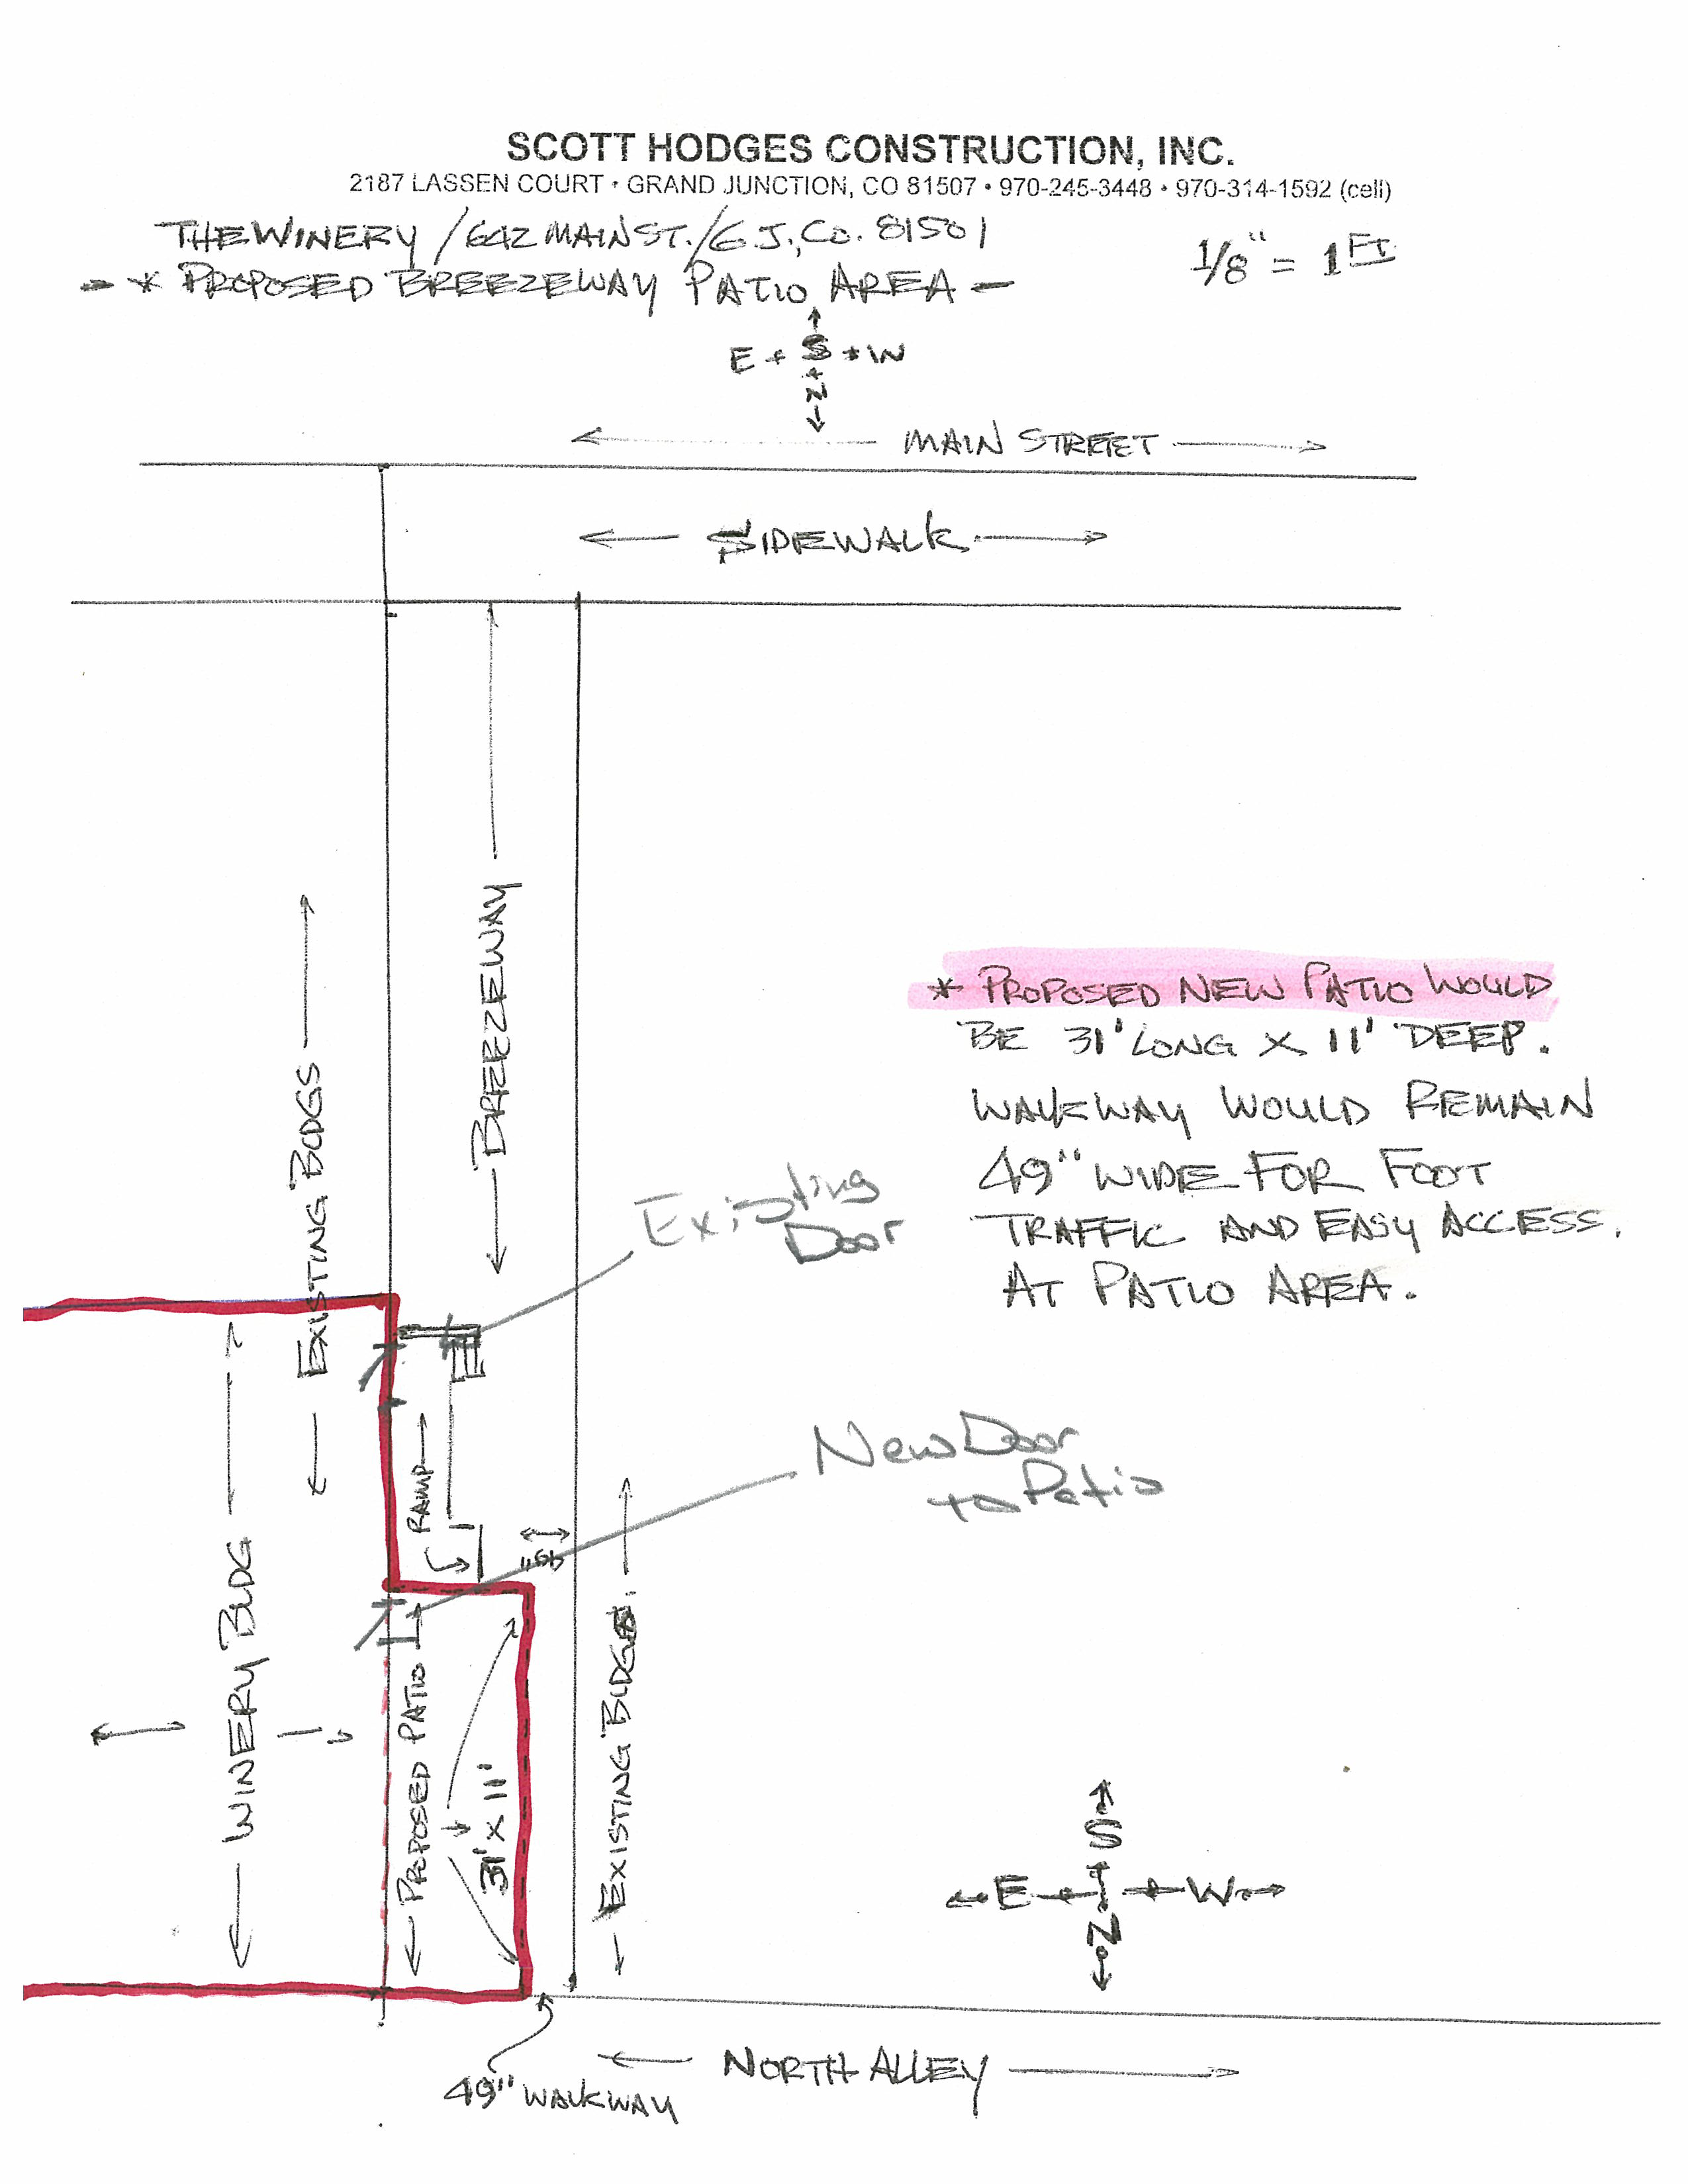 SCOTT HODGES CONSTRUCTION, INC.
2187 LASSEN COURT • GRAND JUNCTION, CO 81507 • 970-245-3448 • 970-314-1592 (cell)
THE WINERY / 642 MAIN ST. / G.J., CO. 81501
* PROPOSED BREEZEWAY PATIO AREA -
1/8" = 1 FT.
E + S + W
N
MAIN STREET
SIDEWALK
BREEZEWAY
EXISTING BLDGS
* PROPOSED NEW PATIO WOULD
BE 31' LONG X 11' DEEP.
WALKWAY WOULD REMAIN
49" WIDE FOR FOOT
TRAFFIC AND EASY ACCESS.
AT PATIO AREA.
Existing
Door
RAMP
New Door
to Patio
49"
WINERY BLDG
PROPOSED PATIO
31' X 11'
EXISTING BLDGS.
S
E W
N
49" WALKWAY
NORTH ALLEY